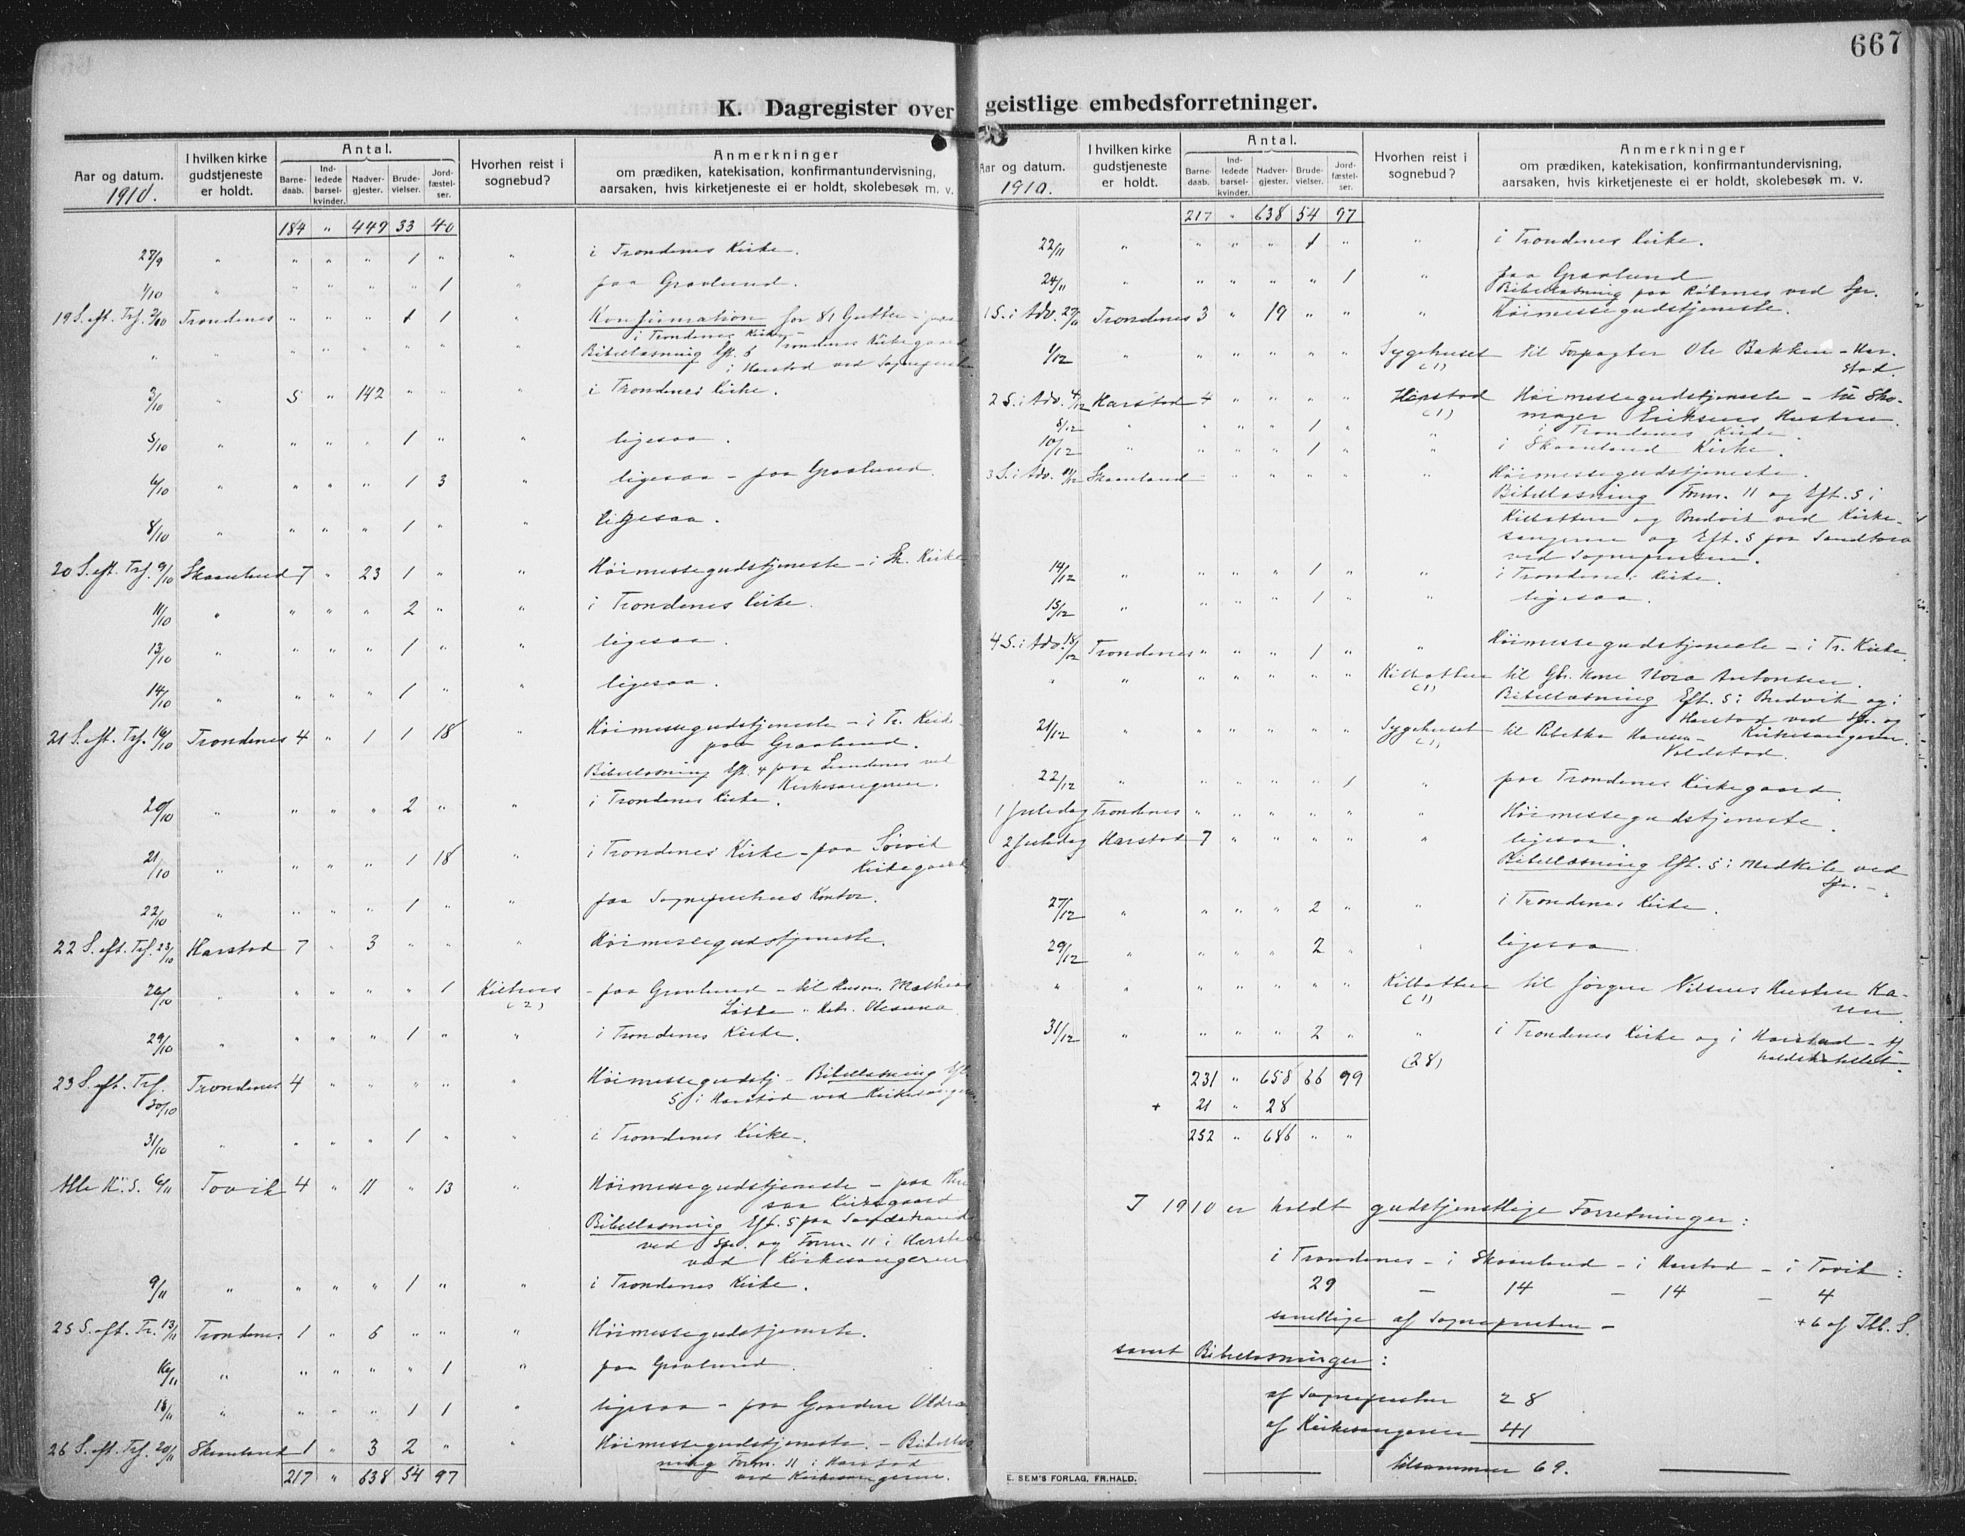 667
K. Dagregister over geistlige embedsforretninger.
Aar og datum.
1910.
I hvilken kirke gudstjeneste er holdt.
Antal.
Barne-daab.
Ind-ledede barsel-kvinder.
Nadver-gjester.
Brude-vielser.
Jord-fæstel-ser.
Hvorhen reist i sognebud?
Anmerkninger
om prædiken, katekisation, konfirmantundervisning,
aarsaken, hvis kirketjeneste ei er holdt, skolebesøk m. v.
184 " 449 33 40
27/9 " " " " 1 " " i Trondenes Kirke.
1/10 " " " " " 1 " paa Gravlund.
19 S. eft. Trf. 2/10 Trondenes " " " 1 1 " Konfirmation for 81 Gutter
i Trondenes Kirke Trondenes Kirkegaard
" " " " " " " Bibellæsning Eft. 5
i Harstad ved Sognepresten
3/10 " 5 " 142 " " " i Trondenes Kirke.
5/10 " " " " 1 " " ligesaa.
6/10 " " " " 1 3 " ligesaa - paa Gravlund.
8/10 " " " " 1 " " ligesaa.
20 S. eft. Trf. 9/10 Skaanland 7 " 23 1 " " Høimessegudstjeneste - i Sk. Kirke
11/10 " " " " 2 " " i Trondenes Kirke.
13/10 " " " " 1 " " ligesaa.
14/10 " " " " 1 " " ligesaa.
21 S. eft. Trf. 16/10 Trondenes 4 " 1 1 18 " Høimessegudstjeneste - i Tr. Kirke
paa Gravlund.
Bibellæsning Eft. 4 paa ved
Kirkesangeren.
20/10 " " " " 2 " " i Trondenes Kirke.
21/10 " " " " 1 18 " i Trondenes Kirke - paa Sørvik
Kirkegaard
22/10 " " " " 1 " " paa Sogneprestens Kontor.
22 S. eft. Trf. 23/10 Harstad 7 " 3 " " " Høimessegudstjeneste.
26/10 " " " " " 1 (2) - paa Gravlund - til Mathias
29/10 " " " " 1 " " i Trondenes Kirke.
23 S. eft. Trf. 30/10 Trondenes 4 " " " " " Høimessegudstj - Bibellæsning Eft.
5 i Harstad ved Kirkesangeren
31/10 " " " " 1 " " i Trondenes Kirke.
Alle H. S. 6/11 Tovik 4 " 11 " 13 Høimessegudstjeneste - paa
Kirkegaard
Bibellæsning Eft. 5 paa Sandstrand
ved Spr. og Form. 11 i Harstad
ved Kirkesangeren
9/11 " " " " 1 " " i Trondenes Kirke.
25 S. eft. Tr. 13/11 Trondenes 1 " 6 " " " Høimessegudstjeneste.
16/11 " " " " " 1 " paa Gravlund.
18/11 " " " " 1 1 " ligesaa - paa Gaarden
26 S. eft. Trf. 20/11 Skaanland 1 " 3 2 " " Høimessegudstjeneste. - Bibellæs-
ning Form. 11 i Harstad
ved Kirkesangeren.
217 " 638 54 97
Aar og datum.
1910.
I hvilken kirke gudstjeneste er holdt.
Antal.
Barne-daab.
Ind-ledede barsel-kvinder.
Nadver-gjester.
Brude-vielser.
Jord-fæstel-ser.
Hvorhen reist i sognebud?
Anmerkninger
om prædiken, katekisation, konfirmantundervisning,
aarsaken, hvis kirketjeneste ei er holdt, skolebesøk m. v.
217 " 638 54 97
22/11 " " " " 1 " " i Trondenes Kirke.
24/11 " " " " " 1 " paa Gravlund
Bibellæsning paa ved Spr.
1 S. i Adv. 27/11 Trondenes 3 " 19 " " " Høimessegudstjeneste.
1/12 " " " " " " Sygehuset (1) til Forpagter Ole Bakken - Har-
stad.
2 S. i Adv. 4/12 Harstad 4 " " " " Harstad (1) Høimessegudstjeneste - til Sko-
mager Eriksens Hustru.
8/12 " " " " 1 " " i Trondenes Kirke.
10/12 " 1 i Skaanland Kirke.
3 S. i Adv. 11/12 Skaanland " " " " " " Høimessegudstjeneste.
Bibellæsning Form. 11 og Eft. 5 i
Kilbotten og Bredvik ved Kirke-
sangeren og Eft. 5 paa Sandtorv
ved Sognepresten.
14/12 " " " " 1 " " i Trondenes Kirke.
15/12 " " " " 1 " " ligesaa.
4 S. i Adv. 18/12 Trondenes " " " 1 " " Høimessegudstjeneste - i Tr. Kirke.
" " " " " " " Kilbotten (1) til Gbr. Kone Nora Antonsen.
Bibellæsning Eft. 5 i Bredvik og i
Harstad ved Spr. og
21/12 " " " " " " Sygehuset (1) til Rebekka Hansen - Kirkesangeren.
Voldstad.
22/12 " " " " " 1 " paa Trondenes Kirkegaard.
1 Juledag Trondenes " " " " " " Høimessegudstjeneste.
2 Juledag Harstad 7 " " " " " ligesaa.
Bibellæsning Eft. 5 i Medkile ved
Spr.
27/12 " " " " 2 " " i Trondenes Kirke.
29/12 " " " " 2 " " ligesaa
" " " " " " " Kilbotten (1) til Jørgen Nilsens Hustru Ka-
ren.
31/12 " " " " 2 " " i Trondenes Kirke og i Harstad -
(28)
231 " 658 66 99
+ 21 " 28
252 " 686 " "
I 1910 er holdt gudstjenstlige Forretninger:
i Trondenes - i Skaanland - i Harstad - i Tovik:
29 - 14 - 14 - 4
samtlige af Sognepresten - +6 af Tbl. S.
samt Bibellæsninger:
af Sognepresten 28
af Kirkesangeren 41
tilsammen 69.
E. SEM'S FORLAG, FR.HALD.